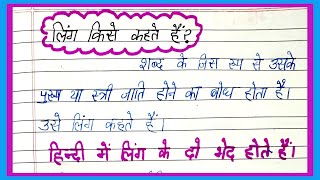 लिंग किसे कहते हैं?
शब्द के जिस रूप से उसके
पुरुष या स्त्री जाति होने का बोध होता है।
उसे लिंग कहते हैं।
हिन्दी में लिंग के दो भेद होते हैं।